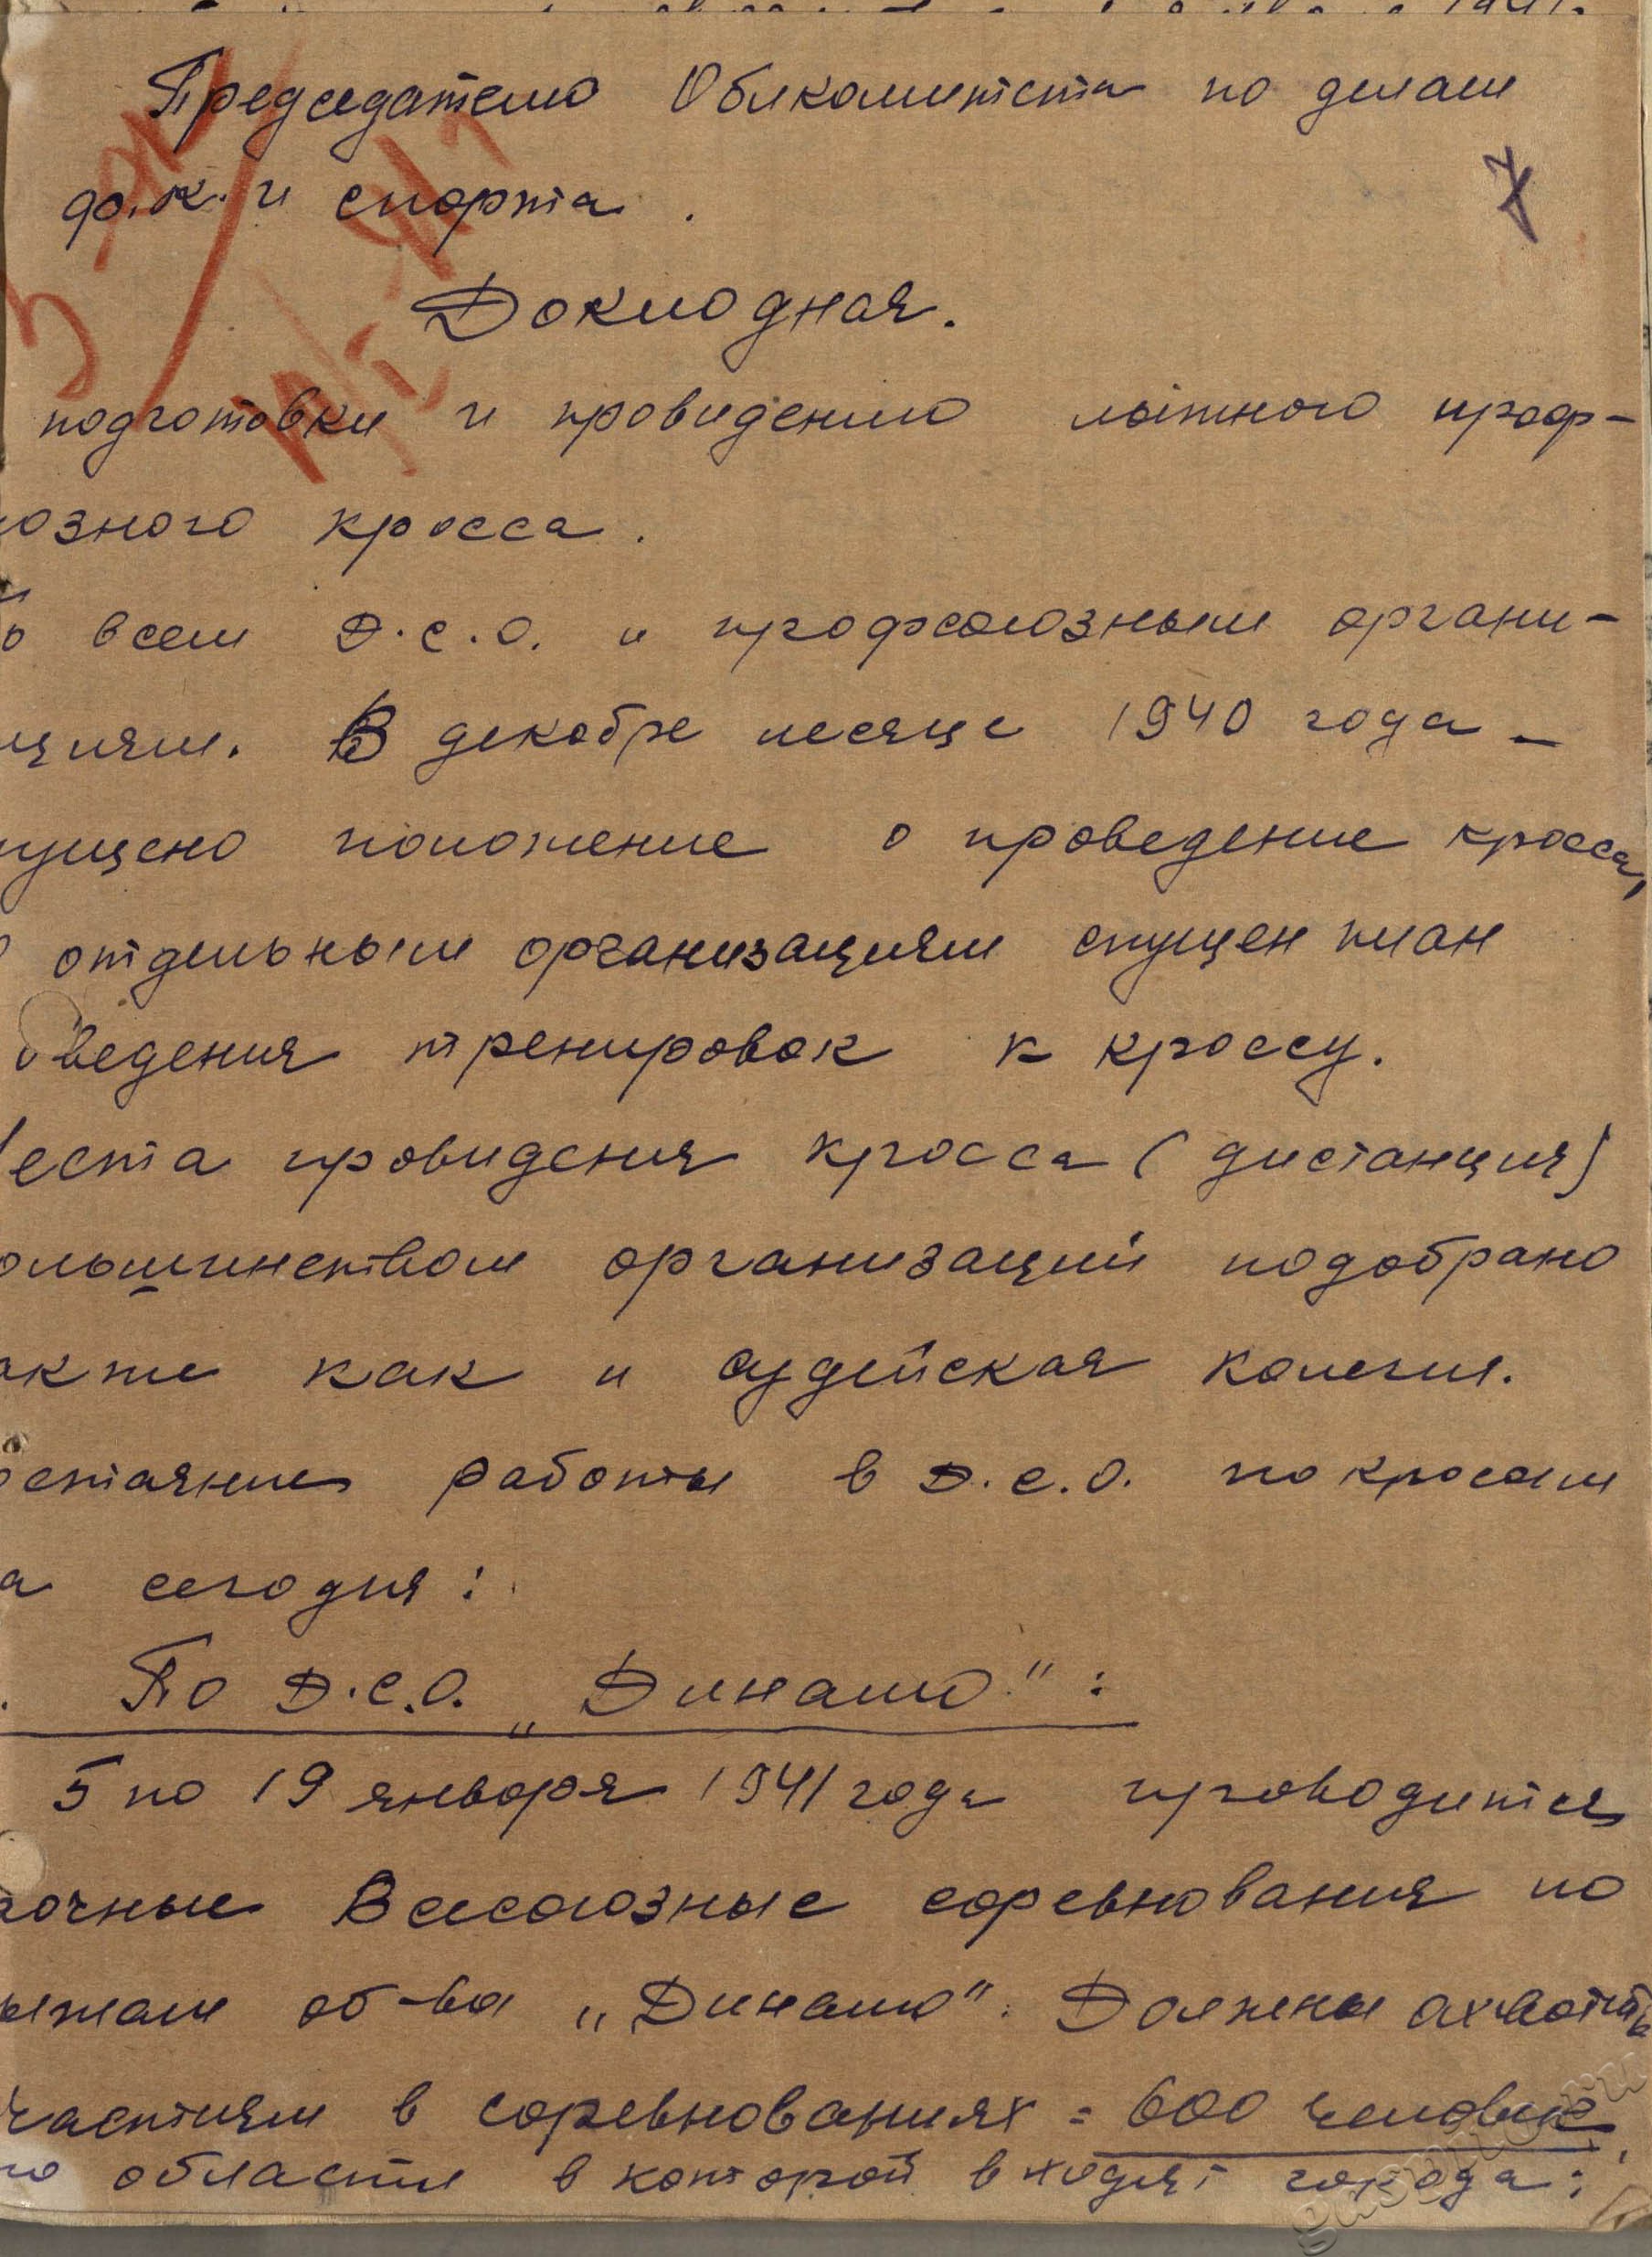 Председателю Облкомитета по делам
7
ф.к. и спорта.
Докладная.
подготовки и провидению лыжного проф-
юзного кросса.
о всем Д.С.О. и профсоюзным органи-
циям. В декабре месяце 1940 года -
пущено положение о проведение кросса,
отдельным организациям спущен план
оведения тренировок к кроссу.
еста провидения кросса (дистанция)
ольшинством организаций подобрано
акже как и судейская колегия.
остаяние работы в Д.С.О. по кросам
а сегодня:
По Д.С.О. „Динамо":
5 по 19 января 1941 года проводится
аочные Всесоюзные соревнования по
ыжам об-ва „Динамо". Должны охватить
частиям в соревнованиях = 600 человек
по области в которой входят города: